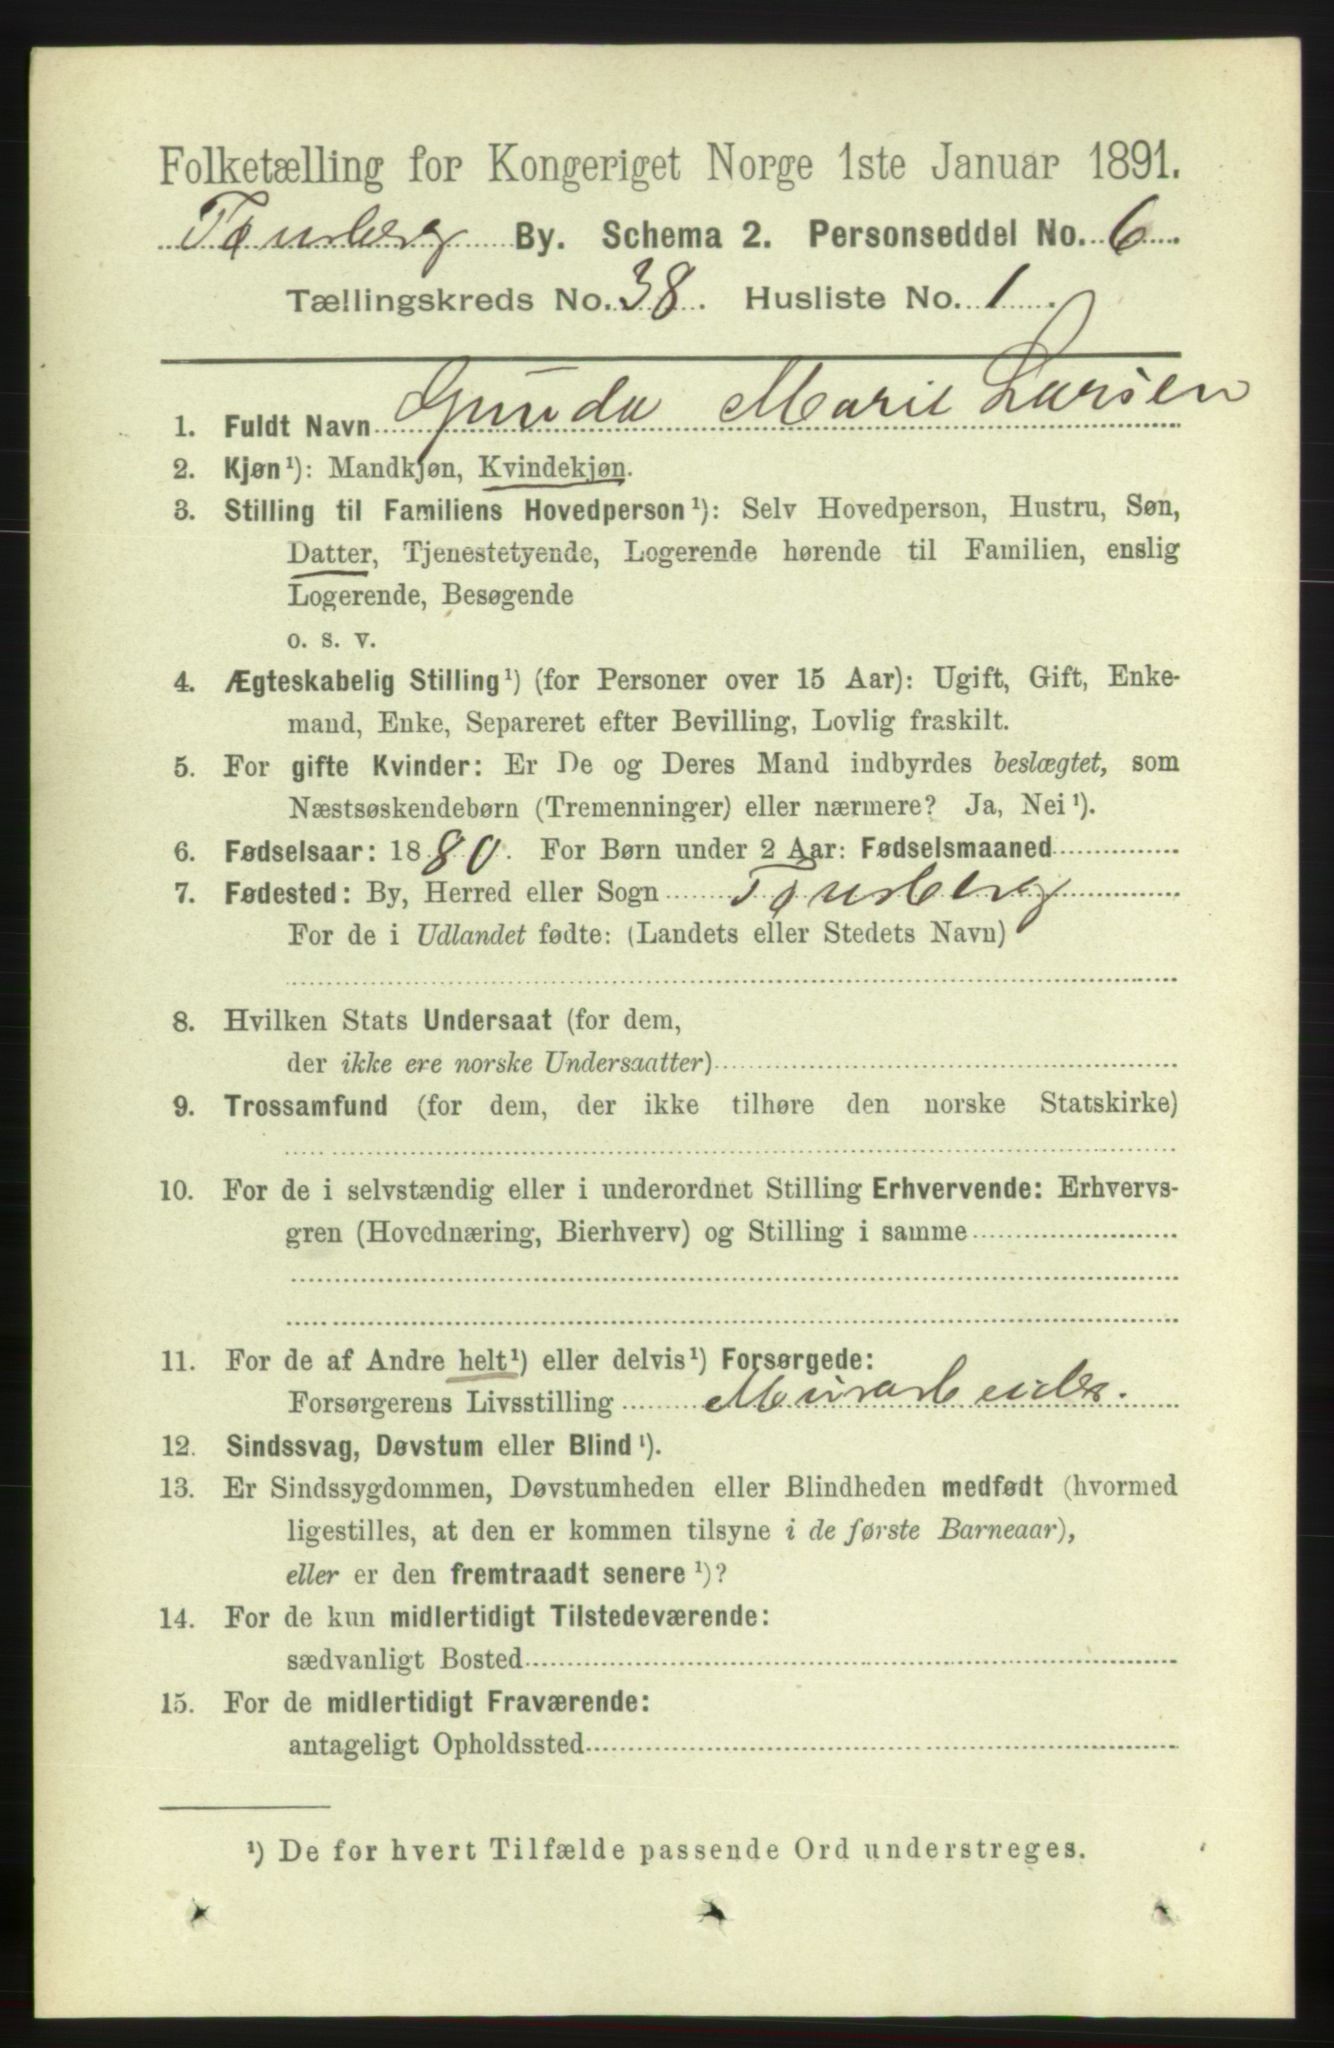 Folketælling for Kongeriget Norge 1ste Januar 1891.
Tønsberg By. Schema 2. Personseddel No. 6.
Tællingskreds No. 38. Husliste No. 1.
1. Fuldt Navn Gunda Marie Larsen
2. Kjøn¹): Mandkjøn, Kvindekjøn.
3. Stilling til Familiens Hovedperson¹): Selv Hovedperson, Hustru, Søn,
Datter, Tjenestetyende, Logerende hørende til Familien, enslig
Logerende, Besøgende
o. s. v.
4. Ægteskabelig Stilling¹) (for Personer over 15 Aar): Ugift, Gift, Enke-
mand, Enke, Separeret efter Bevilling, Lovlig fraskilt.
5. For gifte Kvinder: Er De og Deres Mand indbyrdes beslægtet, som
Næstsøskendebørn (Tremenninger) eller nærmere? Ja, Nei¹).
6. Fødselsaar: 1880. For Børn under 2 Aar: Fødselsmaaned
7. Fødested: By, Herred eller Sogn Tønsberg
For de i Udlandet fødte: (Landets eller Stedets Navn)
8. Hvilken Stats Undersaat (for dem,
der ikke ere norske Undersaatter)
9. Trossamfund (for dem, der ikke tilhøre den norske Statskirke)
10. For de i selvstændig eller i underordnet Stilling Erhvervende: Erhvervs-
gren (Hovednæring, Bierhverv) og Stilling i samme
11. For de af Andre helt¹) eller delvis¹) Forsørgede:
Forsørgerens Livsstilling Murarbeider.
12. Sindssvag, Døvstum eller Blind¹).
13. Er Sindssygdommen, Døvstumheden eller Blindheden medfødt (hvormed
ligestilles, at den er kommen tilsyne i de første Barneaar),
eller er den fremtraadt senere¹)?
14. For de kun midlertidigt Tilstedeværende:
sædvanligt Bosted
15. For de midlertidigt Fraværende:
antageligt Opholdssted
¹) De for hvert Tilfælde passende Ord understreges.